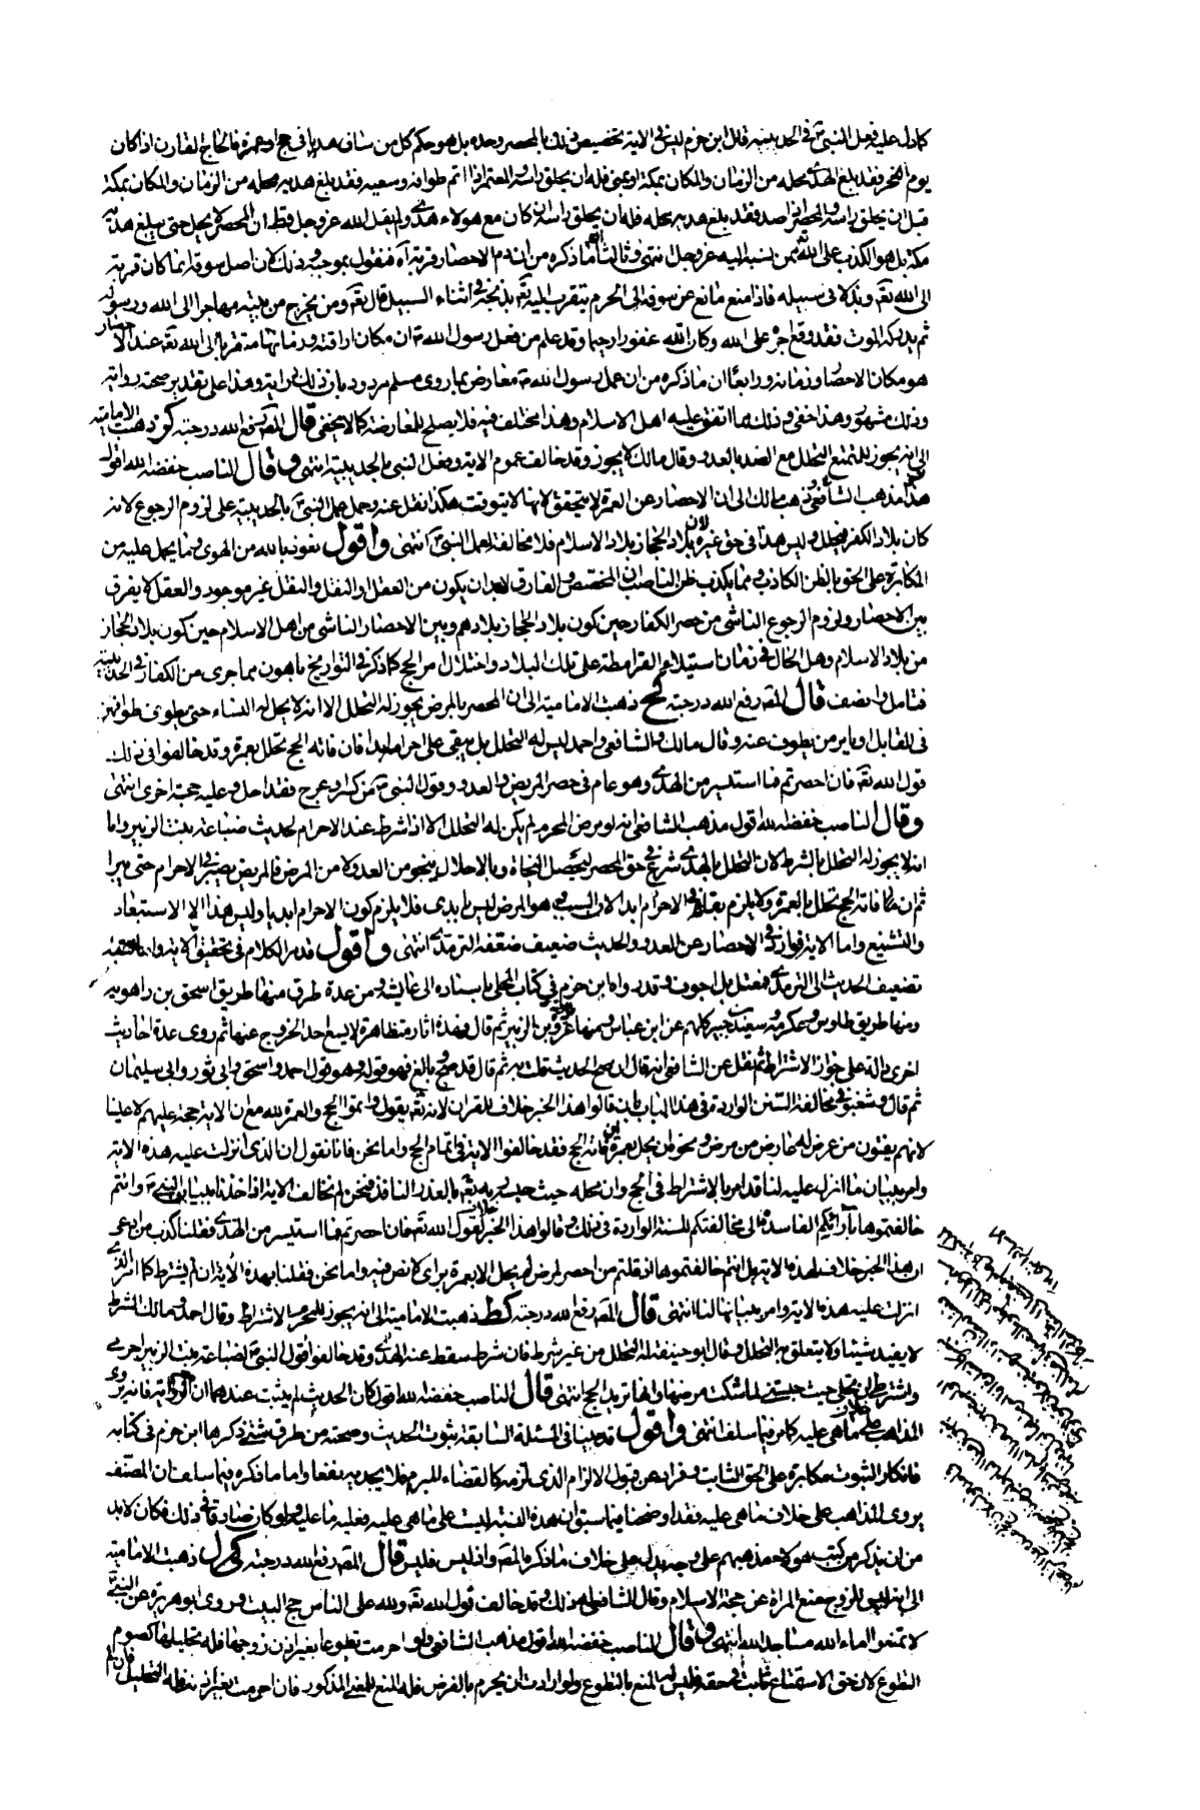 كما دل عليه فعل النبي ص في الحديبية قال ابن حزم ليس في الاية تخصيص ذلك بالمحصر وحده بل هو حكم كل من ساق هديا في حج او عمرة فالحاج القارن اذا كان
يوم النحر فقد بلغ الهدي محله من الزمان والمكان بمكة او بمنى فله ان يحلق راسه والمعتمر اذا اتم طوافه وسعيه فقد بلغ هديه محله من الزمان والمكان بمكة
قبل ان يحلق راسه والمحصر اذا صد فقد بلغ هديه محله فله ان يحلق راسه ان كان مع هؤلاء هدي ولم يقل الله عز وجل قط ان المحصر لا يحل حتى يبلغ هديه
مكة بل هو الكذب على الله تعالى ممن نسبه اليه عز وجل انتهى وثالثا ان ما ذكره من ان دم الاحصار قربة آه فنقول بموجبه وذلك لان اصل سوقه انما كان قربة
الى الله تعالى وبذلا في سبيله فاذا منع مانع عن سوقه الى الحرم يتقرب اليه تعالى بذبحه في اثناء السبيل قال تعالى ومن يخرج من بيته مهاجرا الى الله ورسوله
ثم يدركه الموت فقد وقع اجره على الله وكان الله غفورا رحيما وقد علم من فعل رسول الله ص ان مكان اراقته دمائها متقربا الى الله تعالى عند الاحصار
هو مكان الاحصار وزمانه ورابعا ان ما ذكره من ان عمل رسول الله ص معارض بما روى مسلم مردود بان ذلك دراية وهذا على تقدير صحته رواية
وذلك مشهور وهذا خفي وذلك مما اتفق عليه اهل الاسلام وهذا مختلف فيه فلا يصلح للمعارضة كما لا يخفى قال المصنف رفع الله درجته كز ذهبت الامامية
الى انه يجوز للمتمتع التحلل مع الصد بالعدو وقال مالك لا يجوز وقد خالف عموم الاية وفعل النبي ص بالحديبية انتهى وقال الناصب خفضه الله اقول
هذا مذهب الشافعي وذهب مالك الى ان الاحصار عن العمرة لا يتحقق لانها لا يتوقت هكذا نقل عنه وحمل عمل النبي ص بالحديبية على لزوم الرجوع لانه
كان بلاد الكفر فيتحلل وليس هذا في حق غيره لان بلاد الحجاز بلاد الاسلام فلا مخالفة لعمل النبي ص انتهى واقول نعوذ بالله من الهوى وما يحمل عليه من
المكابرة على الحق بالظن الكاذب ومما يكذب ظن الناصب ان المخصص والفارق لا بد ان يكون من العقل او النقل والنقل غير موجود والعقل لا يفرق
بين الاحصار ولزوم الرجوع الناشي من حصر الكفار حين كون بلاد الحجاز بلادهم وبين الاحصار الناشي من اهل الاسلام حين كون بلاد الحجاز
من بلاد الاسلام وهل الحال في زمان استيلاء القرامطة على تلك البلاد واختلال امر الحج كما ذكر في التواريخ باهون مما جرى من الكفار في الحديبية
فتامل وانصف قال المصنف رفع الله درجته كح ذهبت الامامية الى ان المحصر بالمرض يجوز له التحلل الا انه لا يحل له النساء حتى يطوف طوافهن
في القابل او يامر من يطوف عنه وقال مالك والشافعي واحمد ليس له التحلل بل يبقى على احرامه ابدا فان فاته الحج تحلل بعمرة وقد خالفوا في ذلك
قول الله تعالى فان احصرتم فما استيسر من الهدي وهو عام في حصر المريض والعدو وقول النبي ص من كسر او عرج فقد احل وعليه حجة اخرى انتهى
وقال الناصب خفضه الله اقول مذهب الشافعي انه لو مرض المحرم لم يكن له التحلل الا اذا شرط عند الاحرام لحديث ضباعة بنت الزبير واما
انه لا يجوز له التحلل بالشرط لان التحلل بالهدي شرع في حق المحصر لتحصيل النجاة وبالاحلال ينجو من العدو لا من المرض فالمريض يصبر في الاحرام حتى يبرا
ثم ان كان فاته الحج تحلل بالعمرة ولا يلزم بقاؤه في الاحرام ابدا لان السبب هو المرض ليس بابدي فلا يلزم كون الاحرام ابديا وليس هذا الا لاستبعاد
والتشنيع واما الاية فوارد في الاحصار عن العدو والحديث ضعيف ضعفه الترمذي انتهى واقول قد مر الكلام في تحقيق الاية واما
تضعيف الحديث الى الترمذي فمفتل بل اجوف وقد رواه ابن حزم في كتاب المحلى باسناده الى عائشة من عدة طرق منها طريق اسحق بن راهويه
ومنها طريق طاوس وعكرمة وسعيد بن جبير كلهم عن ابن عباس ومنها عروة بن الزبير ثم قال فهذه اثار متظاهرة لا يسع احد الخروج عنها ثم روى عدة احاديث
اخرى دالة على جواز الاشتراط ثم نقل عن الشافعي انه قال ان صح الحديث قلت به ثم قال قد صح وبالغ فهو قوله وهو قول احمد واسحق وابي ثور وابي سليمان
ثم قال وشغبوا في مخالفة السنن الواردة في هذا الباب بان قالوا هذا الخبر خلاف للقران لانه تعالى يقول واتموا الحج والعمرة لله مع ان الاية حجة عليهم لا علينا
لانهم يفتون من عرض له عارض من مرض ونحوه ان يحل بعمرة ان فاته الحج فقد خالفوا الاية في اتمام الحج واما نحن فانا نقول ان الذي انزلت عليه هذه الاية
وامر ببيان ما انزل عليه لنا قد امر بالاشتراط في الحج وان محله حيث حبسه ربه تعالى بالعذر النافذ فنحن لم نخالف الاية اذا اخذنا ببيان النبي ص وانتم
خالفتموها بآرائكم الفاسدة الى مخالفتكم للسنة الواردة في ذلك وقالوا هذا الخبر خلاف لقول الله تعالى فان احصرتم فما استيسر من الهدي فقلنا كذب من ادعى
ان هذا الخبر خلاف لهذه الاية بل انتم خالفتموها اذ قلتم من احصر لمرض لم يحل الا بعمرة براي لا نص فيه واما نحن فقلنا بهذه الاية ان لم يشترط كما امر الذي
انزلت عليه هذه الاية وامر ببيانها لنا انتهى قال المصنف رفع الله درجته كط ذهبت الامامية الى انه يجوز للمحرم الاشتراط وقال احمد ومالك الشرط
لا يفيد شيئا ولا يتعلق به التحلل وقال ابو حنيفة له التحلل من غير شرط فان شرط سقط عنه الهدي وقد خالفوا قول النبي ص لضباعة بنت الزبير احرمي
واشترطي ان تحلي حيث حبستني لما شكت مرضها وانها تريد الحج انتهى قال الناصب خفضه الله اقول كان الحديث لم يثبت عندهما ان صح الرواية فانه يروي
المذاهب على خلاف ما هي عليه كما مر فيما سلف انتهى واقول قد بينا في المسئلة السابقة ثبوت الحديث وصحته من طرق شتى ذكرها ابن حزم في كتابه
فانكار الثبوت مكابرة على الحق الثابت وفرار عن قبول الالزام الذي لزمه كالقضاء المبرم فلا يجديه نفعا واما ما ذكره فيما سلف ان المصنف
يروي المذاهب على خلاف ما هي عليه فقد اوضحنا فيما سبق ان هذه النسبة ليست على ما هي عليه فعليه ما عليه ولو كان صادقا في ذلك فكان لا بد
من ان يذكر من كتب هؤلاء مذهبهم على وجه يدل على خلاف ما ذكره المصنف واذ ليس فليس قال المصنف رفع الله درجته ل ذهبت الامامية
الى انه ليس للزوج منع المراة عن حجة الاسلام وقال الشافعي له ذلك وقد خالف قول الله تعالى ولله على الناس حج البيت وروى ابو هريرة عن النبي ص
لا تمنعوا اماء الله مساجد الله انتهى وقال الناصب خفضه الله اقول مذهب الشافعي ولو احرمت تطوعا بغير اذن زوجها فله تحليلها كصوم
التطوع لان حق الاستمتاع ثابت في حقه وليس له المنع بالتطوع ولو ارادت ان يحرم بالفرض فله المنع للمعنى المذكور فان احرمت بغير اذنه فله التحليل فان لم